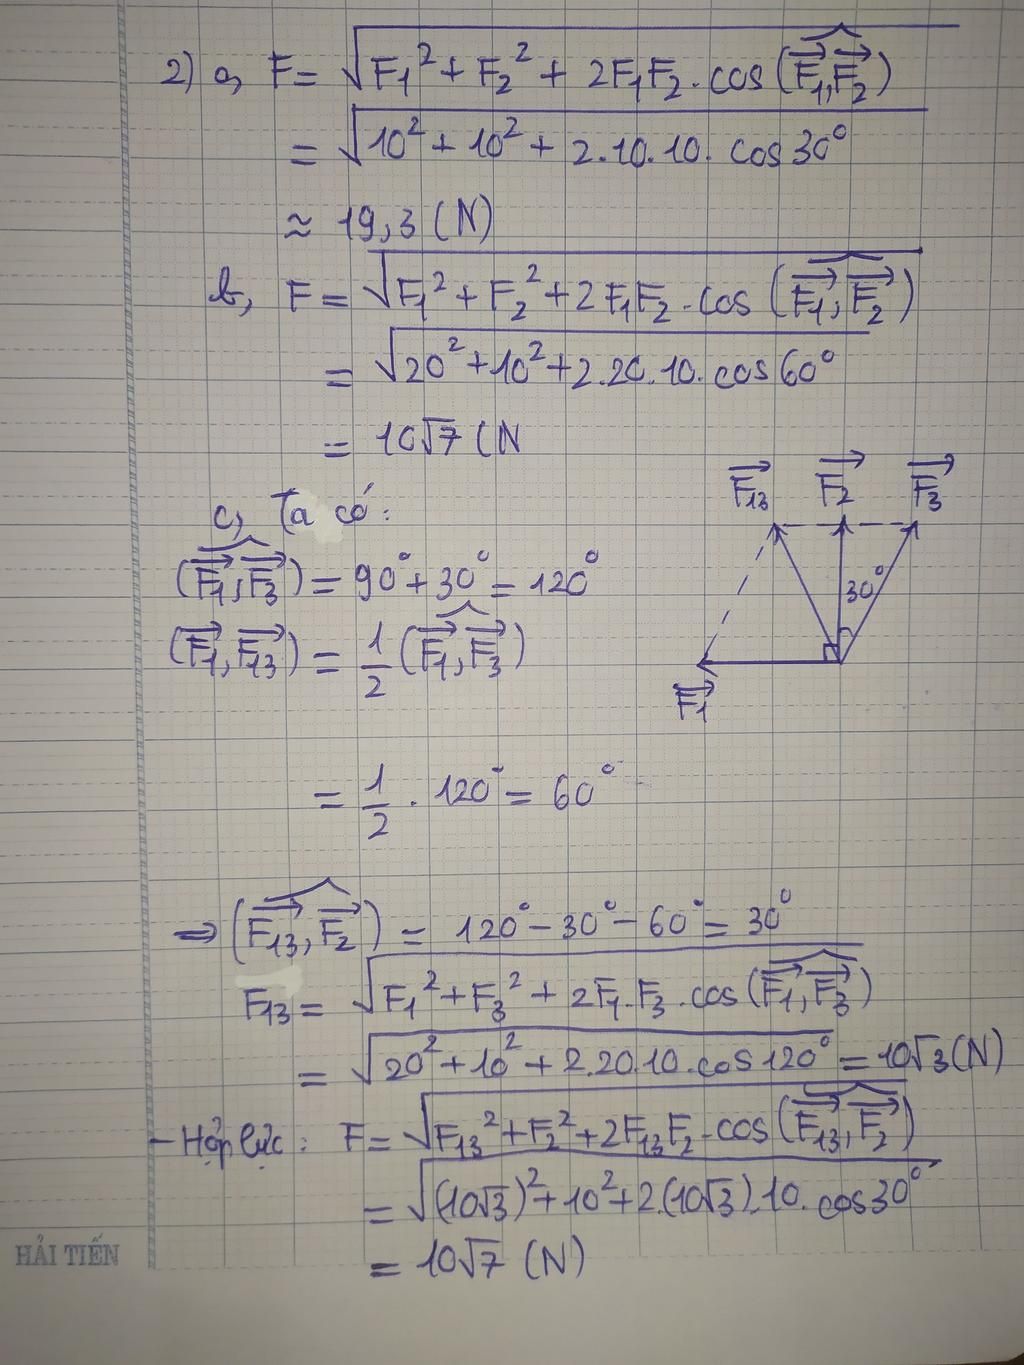 2) a, F = √(F₁² + F₂² + 2F₁F₂ . cos (F₁, F₂))
= √(10² + 10² + 2.10.10. cos 30°)
≈ 19,3 (N)
b, F = √(F₁² + F₂² + 2F₁F₂ . cos (F₁, F₂))
= √(20² + 10² + 2.20.10. cos 60°)
= 10√7 (N
c, Ta có:
(F₁, F₃) = 90° + 30° = 120°
(F₁, F₁₃) = 1/2 (F₁, F₃)
= 1/2 . 120° = 60°
F₁₃ F₂ F₃
30°
F₁
⇒ (F₁₃, F₂) = 120° - 30° - 60° = 30°
F₁₃ = √(F₁² + F₃² + 2F₁.F₃ . cos (F₁, F₃))
= √(20² + 10² + 2.20.10. cos 120°) = 10√3 (N)
- Hợp lực: F = √(F₁₃² + F₂² + 2F₁₃F₂ . cos (F₁₃, F₂))
= √((10√3)² + 10² + 2.(10√3).10. cos 30°)
= 10√7 (N)
HẢI TIẾN